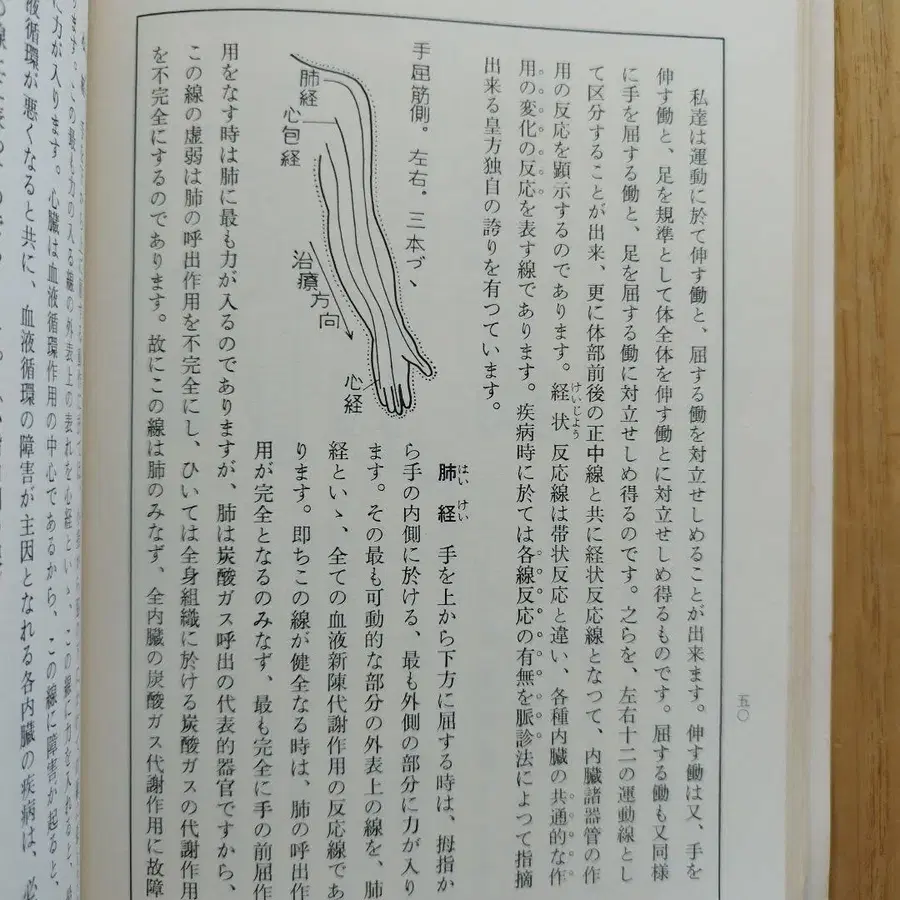 五〇
私達は運動に於て伸す働と、屈する働を対立せしめることが出来ます。伸す働は又、手を
伸す働と、足を規準として体全体を伸す働とに対立せしめ得るものです。屈する働も又同様
に手を屈する働と、足を屈する働に対立せしめ得るのです。之らを、左右十二の運動線とし
て区分することが出来、更に体部前後の正中線と共に経状反応線となつて、内臓諸器管の作
用の反応を顕示するのであります。経状反応線は帯状反応と違い、各種内臓の共通的な作
けいじよう
用の変化の反応を表す線であります。疾病時に於ては各線反応の有無を脈診法によつて指摘
出来る皇方独自の誇りを有つています。
手屈筋側。左右。三本づゝ
肺経
心包経
治療方向
心経
肺経 手を上から下方に屈する時は、拇指か
はいけい
ら手の内側に於ける、最も外側の部分に力が入り
ます。その最も可動的な部分の外表上の線を、肺
経といゝ、全ての血液新陳代謝作用の反応線であ
ります。即ちこの線が健全なる時は、肺の呼出作
用が完全となるのみなず、最も完全に手の前屈作
用をなす時は肺に最も力が入るのでありますが、肺は炭酸ガス呼出の代表的器官ですから、
この線の虚弱は肺の呼出作用を不完全にし、ひいては全身組織に於ける炭酸ガスの代謝作用
を不完全にするのであります。故にこの線は肺のみなず、全内臓の炭酸ガス代謝作用に故障
の外表上の表れを心経といゝ、この線に力を入れると、
に力が入ります。心臓は血液循環作用の中心であるから、この線に障害が起ると、
液循環が悪くなると共に、血液循環の障害が主因となれる各内臓の疾病は、必